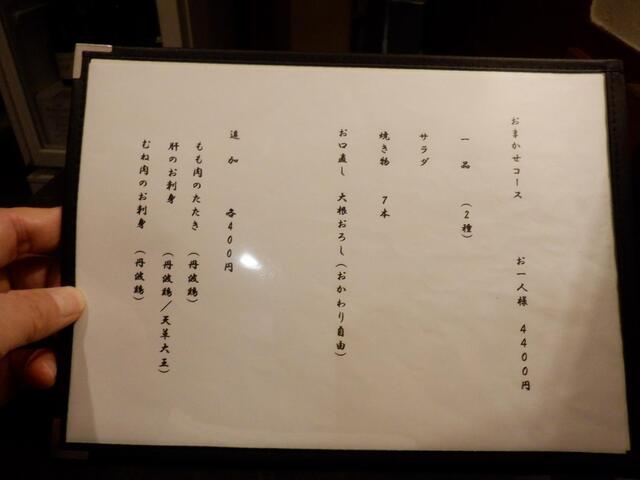 おまかせコース
お一人様 4400円
一品 （2種）
サラダ
焼き物 7本
お口直し 大根おろし（おかわり自由）
追加 各400円
もも肉のたたき （丹波鶏）
肝のお刺身 （丹波鶏／天草大王）
むね肉のお刺身 （丹波鶏）